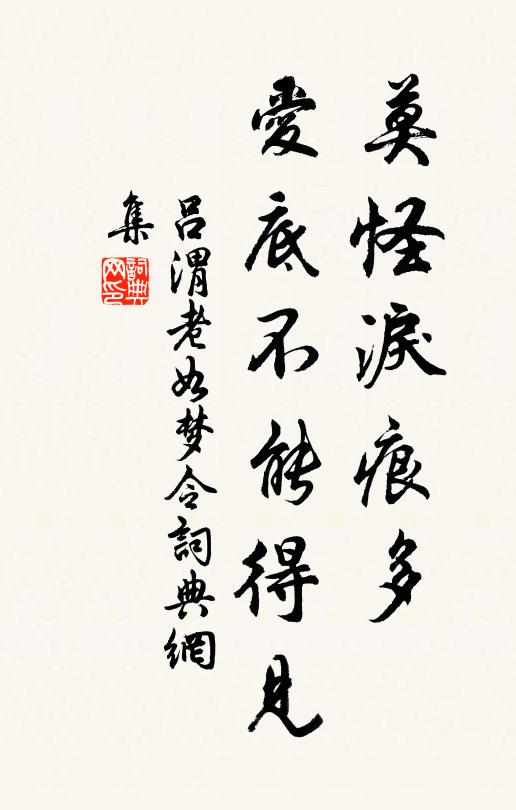 莫怪淚痕多
愛底不能得見
吕渭老如梦令詞典網
集
詞典网印